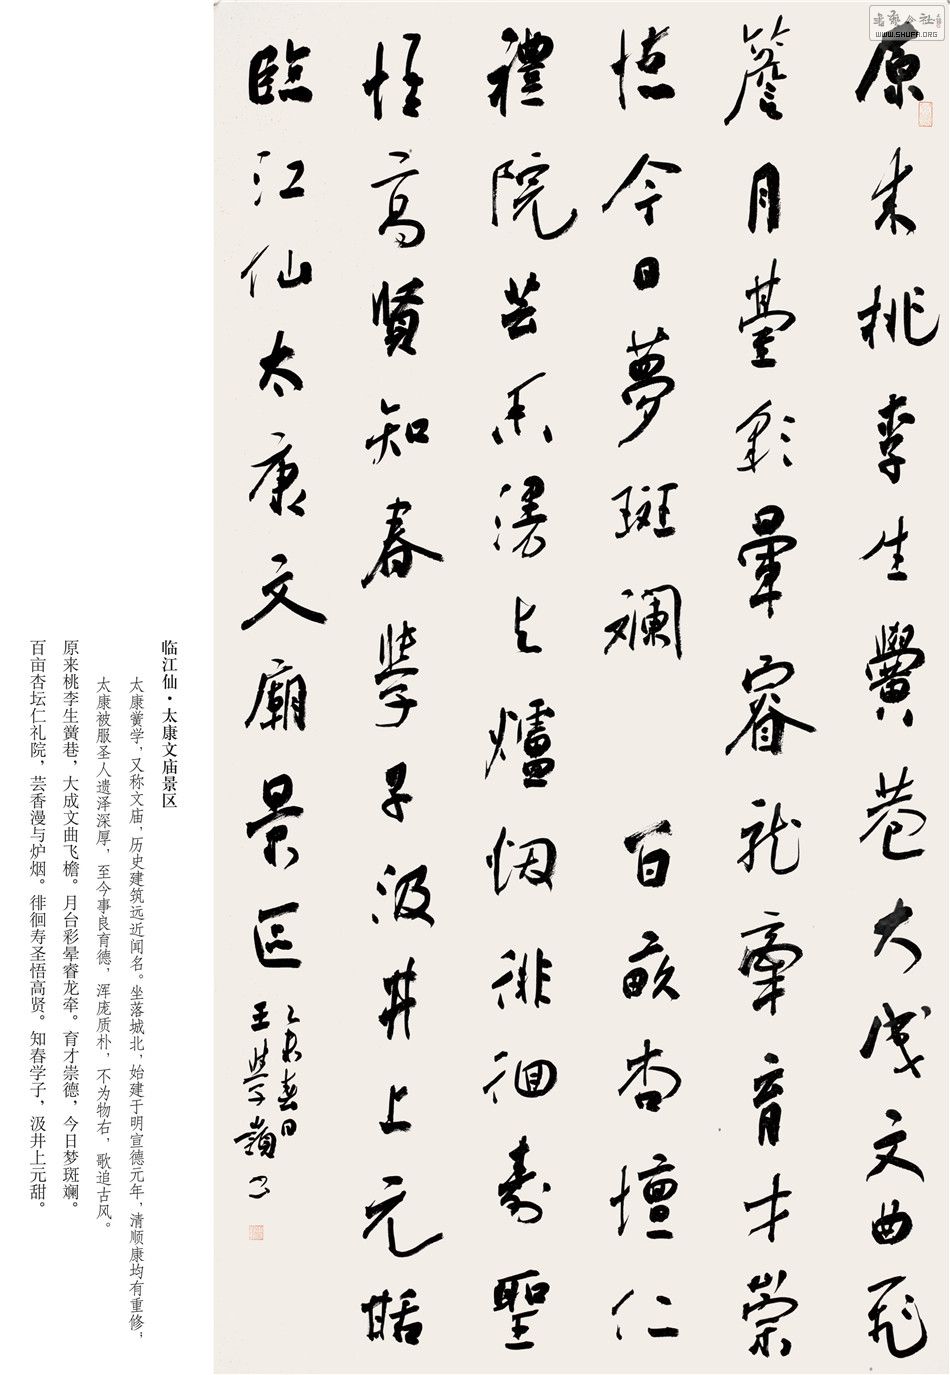 书法公社
WWW.SHUFA.ORG
原来桃李生黌巷大成文曲飛
簷月臺彩暈睿龙牽育才崇
德今日夢斑斕 百畝杏壇仁
禮院芸香漫与爐烟徘徊壽聖
悟高賢知春學子汲井上元甜
臨江仙太康文廟景区
乙未春日
王學嶺
临江仙·太康文庙景区
太康黉学，又称文庙，历史建筑远近闻名。坐落城北，始建于明宣德元年，清顺康均有重修，
太康被服圣人遗泽深厚，至今事良育德，浑庞质朴，不为物右，歌追古风。
原来桃李生黉巷，大成文曲飞檐。月台彩晕睿龙牵。育才崇德，今日梦斑斓。
百亩杏坛仁礼院，芸香漫与炉烟。徘徊寿圣悟高贤。知春学子，汲井上元甜。